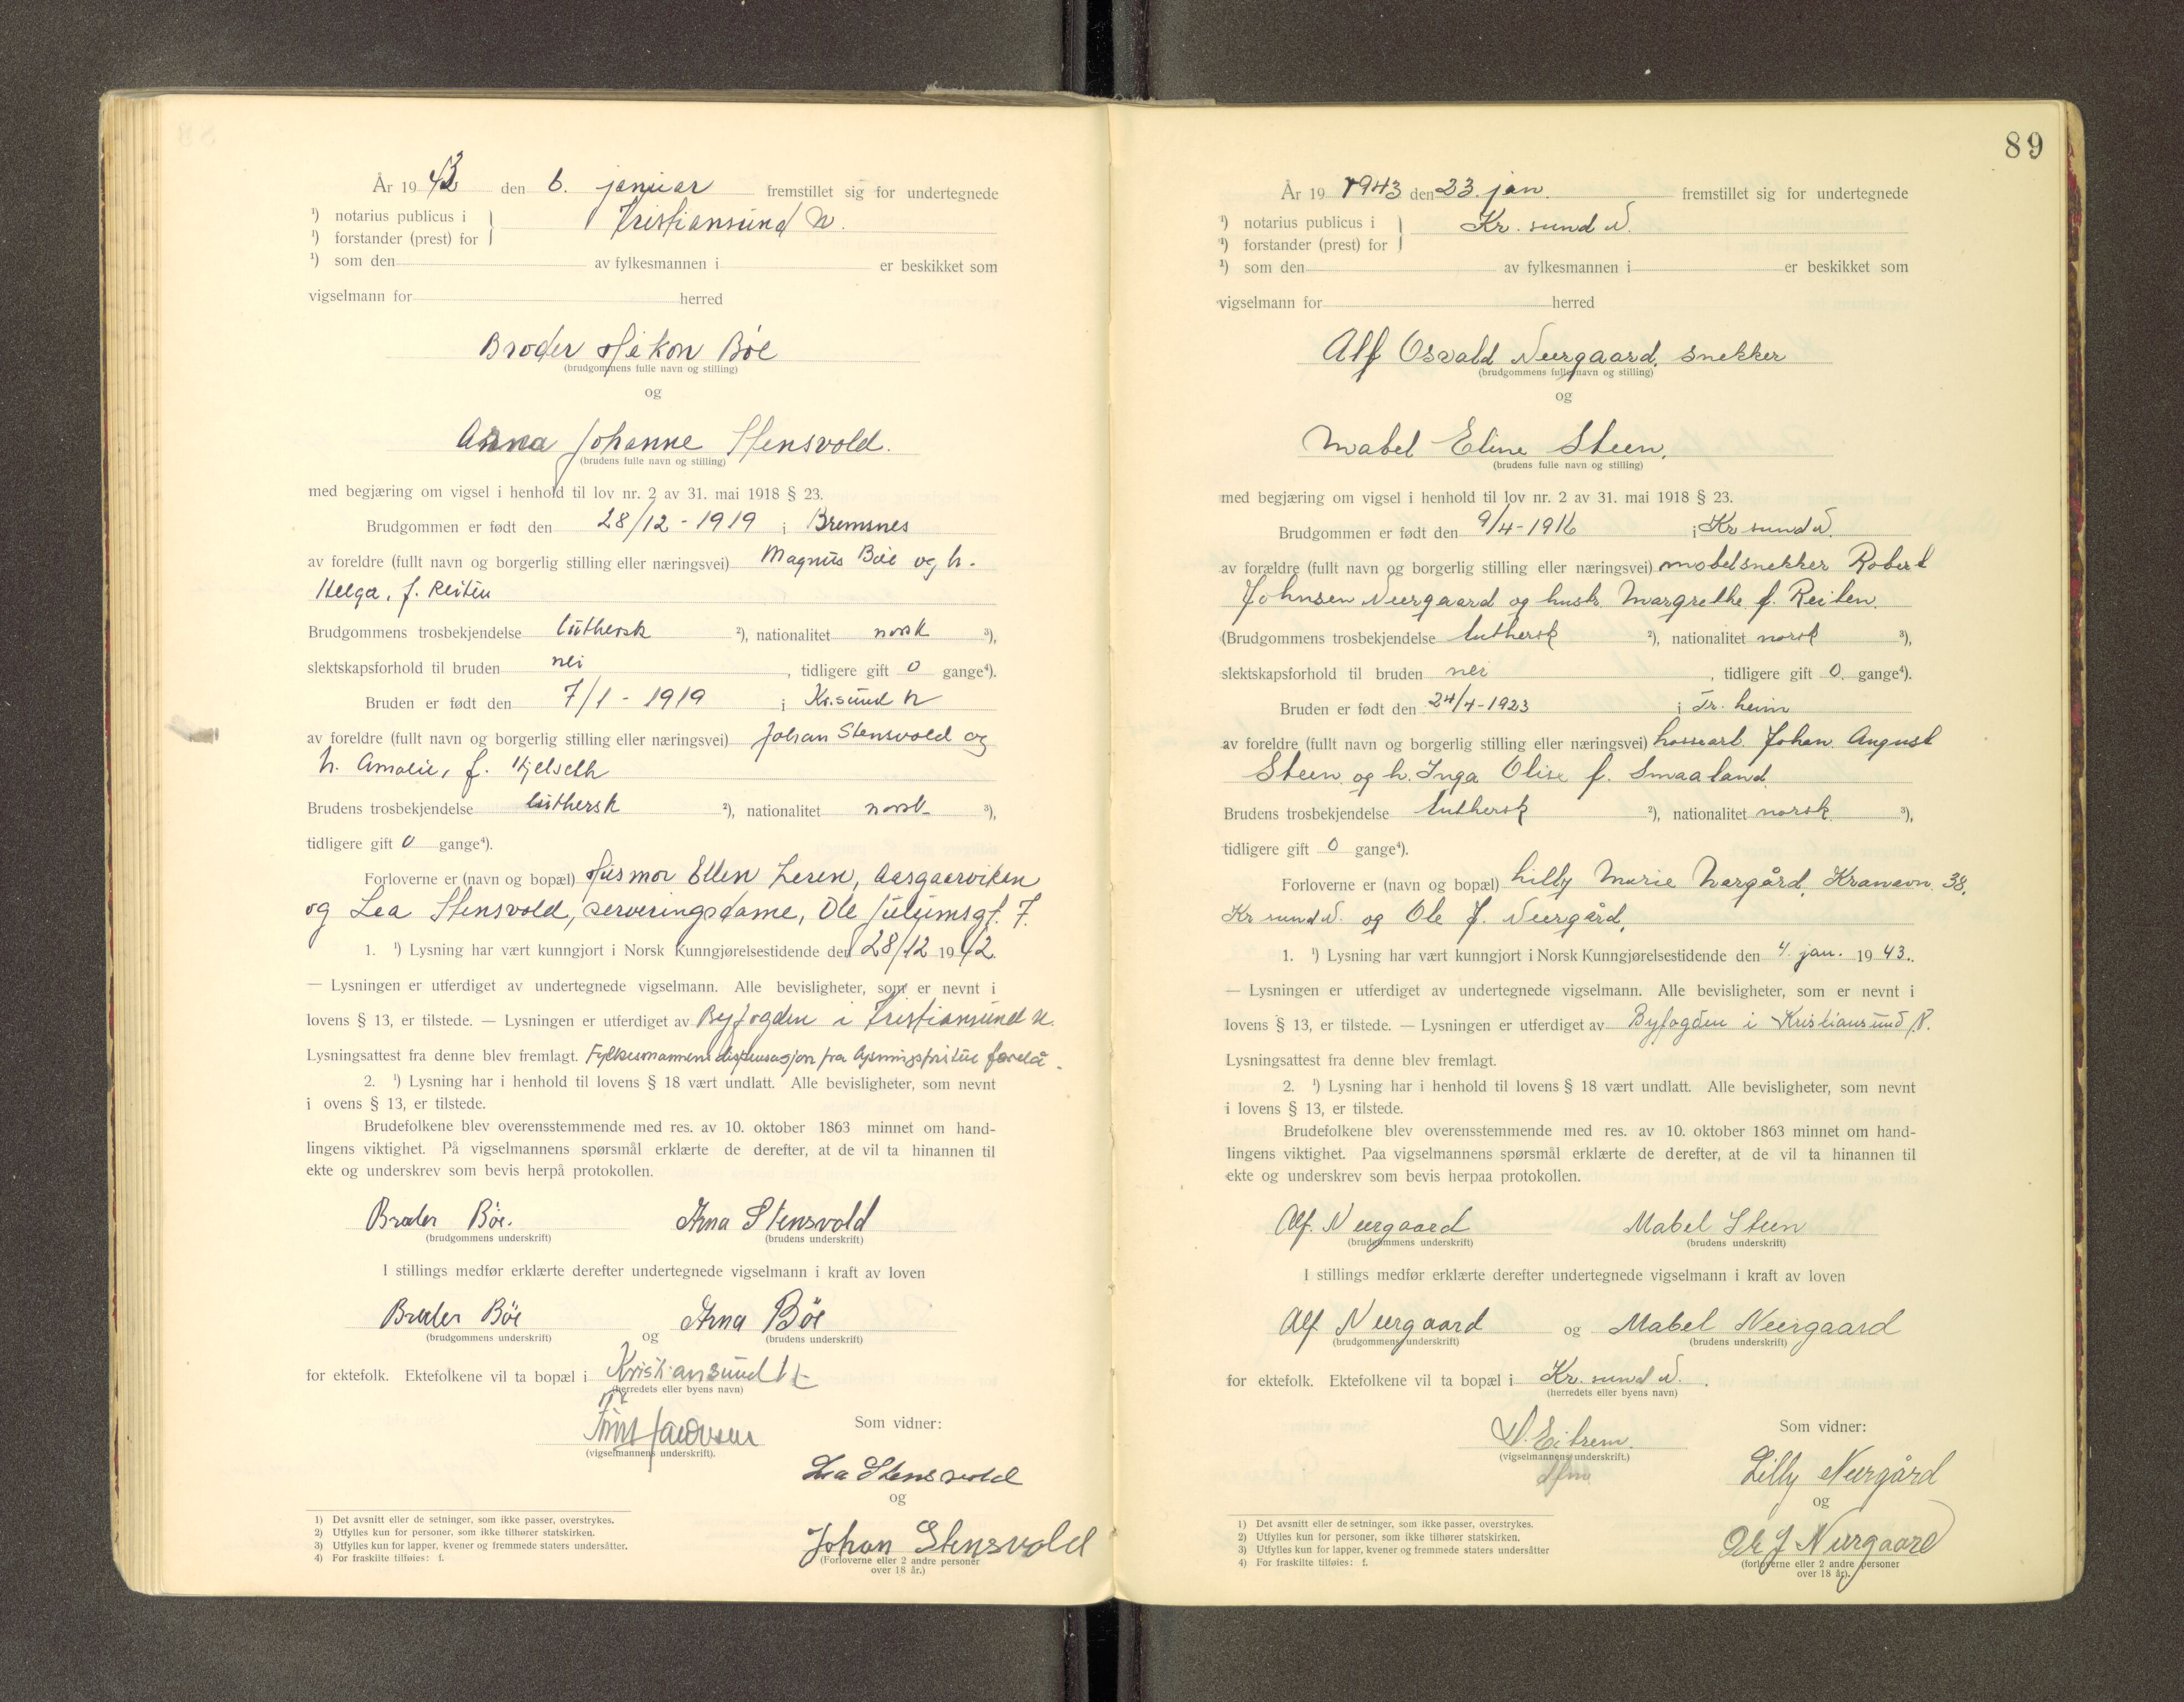 År 19 43 den 6. januar fremstillet sig for undertegnede
¹) notarius publicus i Kristiansund N.
¹) forstander (prest) for
¹) som den av fylkesmannen i er beskikket som
vigselmann for herred
Broder Håkon Böe
(brudgommens fulle navn og stilling)
og
Johanne Stensvold.
(brudens fulle navn og stilling)
med begjæring om vigsel i henhold til lov nr. 2 av 31. mai 1918 § 23.
Brudgommen er født den 28/12 - 1919 i Bremsnes
av foreldre (fullt navn og borgerlig stilling eller næringsvei) Magnus Böe og h.
Helga, f. Reiten
Brudgommens trosbekjendelse luthersk ²), nationalitet norsk ³),
slektskapsforhold til bruden nei , tidligere gift 0 gange⁴).
Bruden er født den 7/1 - 1919 i Kr.sund N
av foreldre (fullt navn og borgerlig stilling eller næringsvei) Johan Stensvold og
h. Amalie, f. Hjelseth
Brudens trosbekjendelse luthersk ²), nationalitet norsk ³),
tidligere gift 0 gange⁴).
Forloverne er (navn og bopæl) Husmor Ellen Leren, Aasgaarviken
og Lea Stensvold, serveringsdame, Ole gt. 7.
1. ¹) Lysning har vært kunngjort i Norsk Kunngjørelsestidende den 28/12 19 42.
— Lysningen er utferdiget av undertegnede vigselmann. Alle bevisligheter, som er nevnt i
lovens § 13, er tilstede. — Lysningen er utferdiget av Byfogden i Kristiansund N.
Lysningsattest fra denne blev fremlagt. Fylkesmannens dispensasjon fra lysningsfristen forelå.
2. ¹) Lysning har i henhold til lovens § 18 vært undlatt. Alle bevisligheter, som nevnt
i ovens § 13, er tilstede.
Brudefolkene blev overensstemmende med res. av 10. oktober 1863 minnet om hand-
lingens viktighet. På vigselmannens spørsmål erklærte de derefter, at de vil ta hinannen til
ekte og underskrev som bevis herpå protokollen.
Broder Böe. Arna Stensvold
(brudgommens underskrift) (brudens underskrift)
I stillings medfør erklærte derefter undertegnede vigselmann i kraft av loven
Broder Böe og Arna Böe
(brudgommens underskrift) (brudens underskrift)
for ektefolk. Ektefolkene vil ta bopæl i Kristiansund N
(herredets eller byens navn)
(vigselmannens underskrift).
Som vidner:
Lea Stensvold
og
Johan Stensvold
(Forloverne eller 2 andre personer
over 18 år.)
1) Det avsnitt eller de setninger, som ikke passer, overstrykes.
2) Utfylles kun for personer, som ikke tilhører statskirken.
3) Utfylles kun for lapper, kvener og fremmede staters undersåtter.
4) For fraskilte tilføies: f.
89
År 19 1943 den 23. jan. fremstillet sig for undertegnede
¹) notarius publicus i Kr. sund N.
¹) forstander (prest) for
¹) som den av fylkesmannen i er beskikket som
vigselmann for herred
Alf Osvald Neergaard, snekker
(brudgommens fulle navn og stilling)
og
Mabel Eline Steen,
(brudens fulle navn og stilling)
med begjæring om vigsel i henhold til lov nr. 2 av 31. mai 1918 § 23.
Brudgommen er født den 9/4 - 1916 i Kr sund N.
av forældre (fullt navn og borgerlig stilling eller næringsvei) møbelsnekker Robert
Johnsen Neergaard og hustr. Margrethe f. Reiten.
(Brudgommens trosbekjendelse luthersk ²), nationalitet norsk ³),
slektskapsforhold til bruden nei , tidligere gift 0. gange⁴).
Bruden er født den 24/4 - 1923 i Tr. heim
av foreldre (fullt navn og borgerlig stilling eller næringsvei) Johan August
Steen og h. Inga Olise f. Smaaland.
Brudens trosbekjendelse luthersk ²), nationalitet norsk ³),
tidligere gift 0 gange⁴).
Forloverne er (navn og bopæl) Lilly Marie Nergård, Kranavn. 38,
Kr sund N. og Ole J. Neergård,
1. ¹) Lysning har vært kunngjort i Norsk Kunngjørelsestidende den 4. jan. 19 43.
— Lysningen er utferdiget av undertegnede vigselmann. Alle bevisligheter, som er nevnt i
lovens § 13, er tilstede. — Lysningen er utferdiget av Byfogden i Kristiansund N.
Lysningsattest fra denne blev fremlagt.
2. ¹) Lysning har i henhold til lovens § 18 vært undlatt. Alle bevisligheter, som nevnt
i lovens § 13, er tilstede.
Brudefolkene blev overensstemmende med res. av 10. oktober 1863 minnet om hand-
lingens viktighet. Paa vigselmannens spørsmål erklærte de derefter, at de vil ta hinannen til
ekte og underskrev som bevis herpaa protokollen.
Alf. Neergaard Mabel Steen
(brudgommens underskrift) (brudens underskrift)
I stillings medfør erklærte derefter undertegnede vigselmann i kraft av loven
Alf Neergaard og Mabel Neergaard
(brudgommens underskrift) (brudens underskrift)
for ektefolk. Ektefolkene vil ta bopæl i Kr. sund N.
(herredets eller byens navn)
N. Eitrem.
(vigselmannens underskrift.)
Som vidner:
Lilly Neergård
og
Ole J Neergaard
(forloverne eller 2 andre personer
over 18 år).
1) Det avsnitt eller de setninger, som ikke passer, overstrykes.
2) Utfylles kun for personer, som ikke tilhører statskirken.
3) Utfylles kun for lapper, kvener og fremmede staters undersåtter
4) For fraskilte tilføies: f.